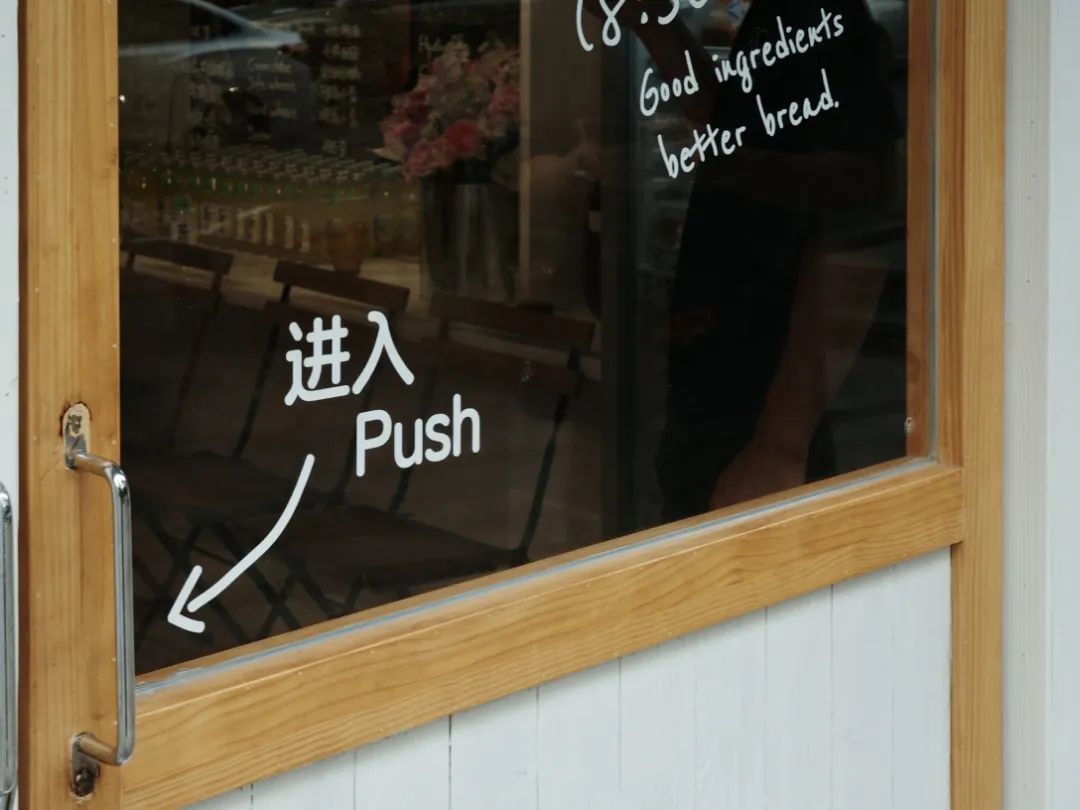 Good ingredients
better bread.
进入
Push